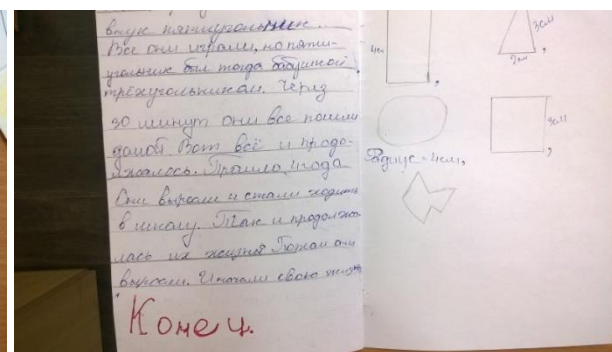 внук пятиугольник...
Все они играли, но пяти-
угольник был тогда бабушкой
трёхугольником. Через
30 минут они все пошли
домой. Вот всё и продо-
лжалось. Прошло 4 года
Они выросли и стали ходить
в школу. Так и продолжа
лась их жизнь. Потом они
выросли. И начали свою жизнь
Конец.
4см
,
3см
2см
,
3см
,
Радиус = 4см,